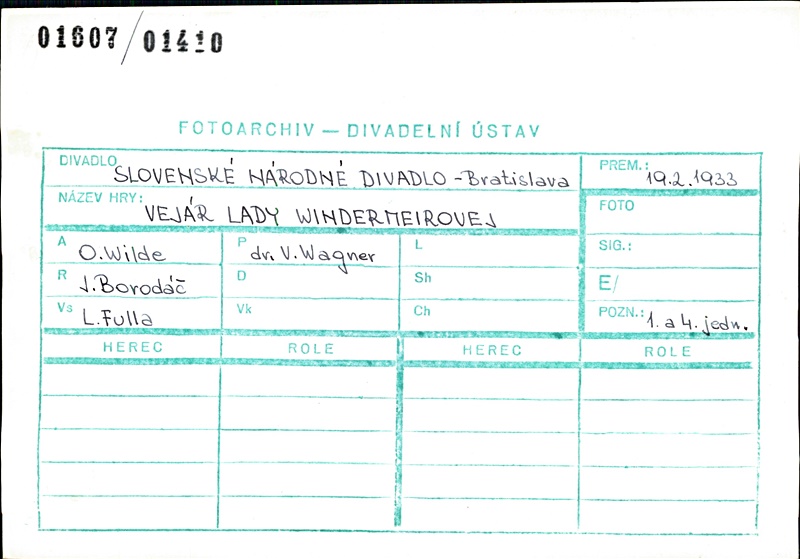 01607/01410
FOTOARCHIV — DIVADELNÍ ÚSTAV
DIVADLO SLOVENSKÉ NÁRODNÉ DIVADLO - Bratislava
PREM.: 19.2.1933
NÁZEV HRY: VEJÁR LADY WINDERMEIROVEJ
FOTO
A O. Wilde
P dr. V. Wagner
L
SIG.:
R J. Borodáč
D
Sh
E/
Vs L. Fulla
Vk
Ch
POZN.: 1. a 4. jedn.
HEREC ROLE HEREC ROLE